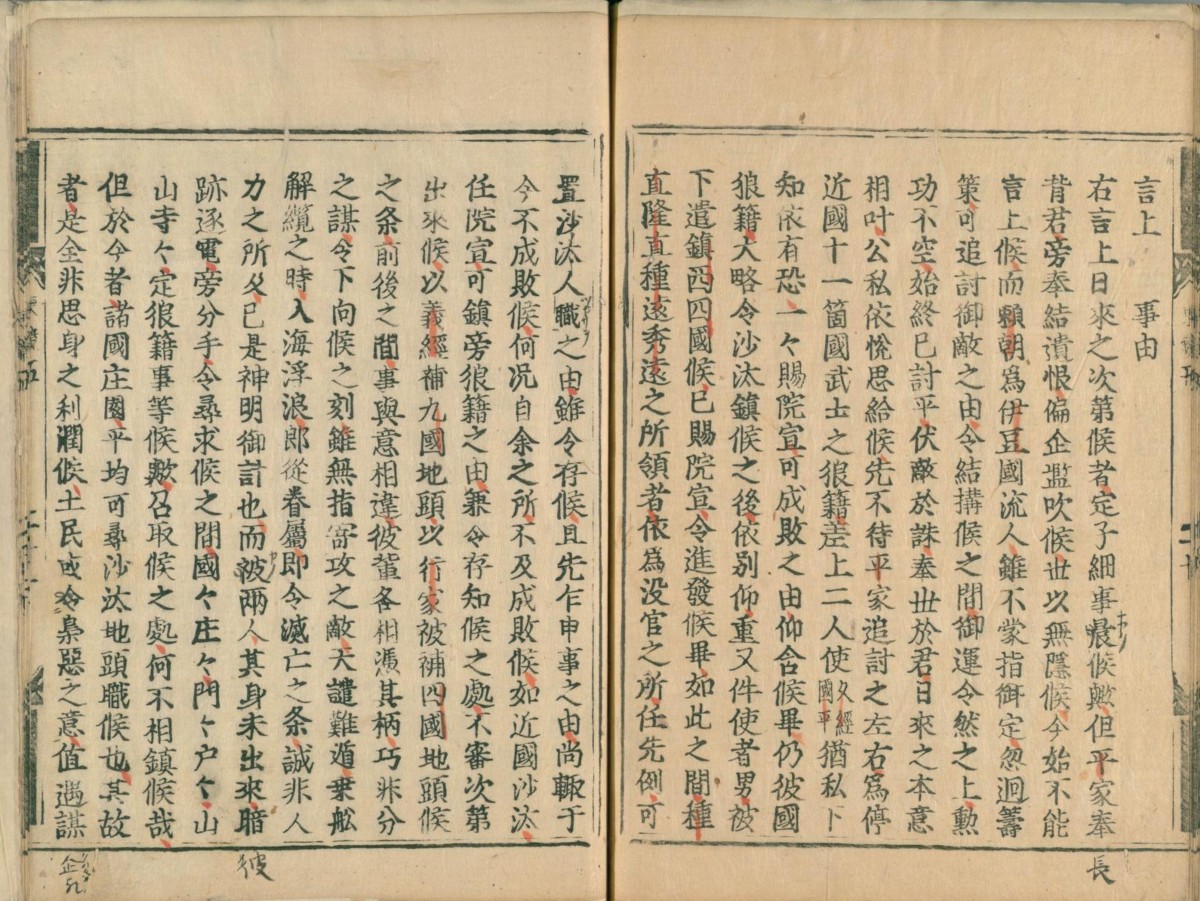 言上　事由
右言上日來之次第候者定子細事晨候歟但平家奉
背君旁奉結遺恨偏企濫吹候世以無隱候今始不能
言上候而賴朝爲伊豆國流人雖不蒙指御定忽迴籌
策可追討御敵之由令結搆候之間御運令然之上勲
功不空始終已討平伏敵於誅奉世於君日來之本意
相叶公私依悅思給候先不待平家追討之左右爲停
近國十一箇國武士之狼籍差上二人使久經國平猶私下
知依有恐一々賜院宣可成敗之由仰含候畢仍彼國
狼籍大略令沙汰鎮候之後依別仰重又件使者男被
下遣鎮西四國候已賜院宣令進發候畢如此之間種
直隆直種遠秀遠之所領者依爲没官之所任先例可
置沙汰人職之由雖令存候且先乍申事之由尚輙于
今不成敗候何况自余之所不及成敗候如近國沙汰
任院宣可鎮旁狼籍之由兼令存知候之處不審次第
出來候以義經補九國地頭以行家被補四國地頭候
之条前後之間事與意相違彼輩各相憑其柄巧非分
之謀令下向候之刻雖無指寄攻之敵天譴難遁乗舩
解纜之時入海浮浪郎從眷屬即令滅亡之条誠非人
力之所及已是神明御計也而被兩人其身未出來暗
跡逐電旁分手令尋求候之間國々庄々門々户々山
山寺々定狼籍事等候歟召取候之處何不相鎮候哉
但於今者諸國庄園平均可尋沙汰地頭職候也其故
者是全非思身之利潤候土民或令梟惡之意值遇謀
長
彼